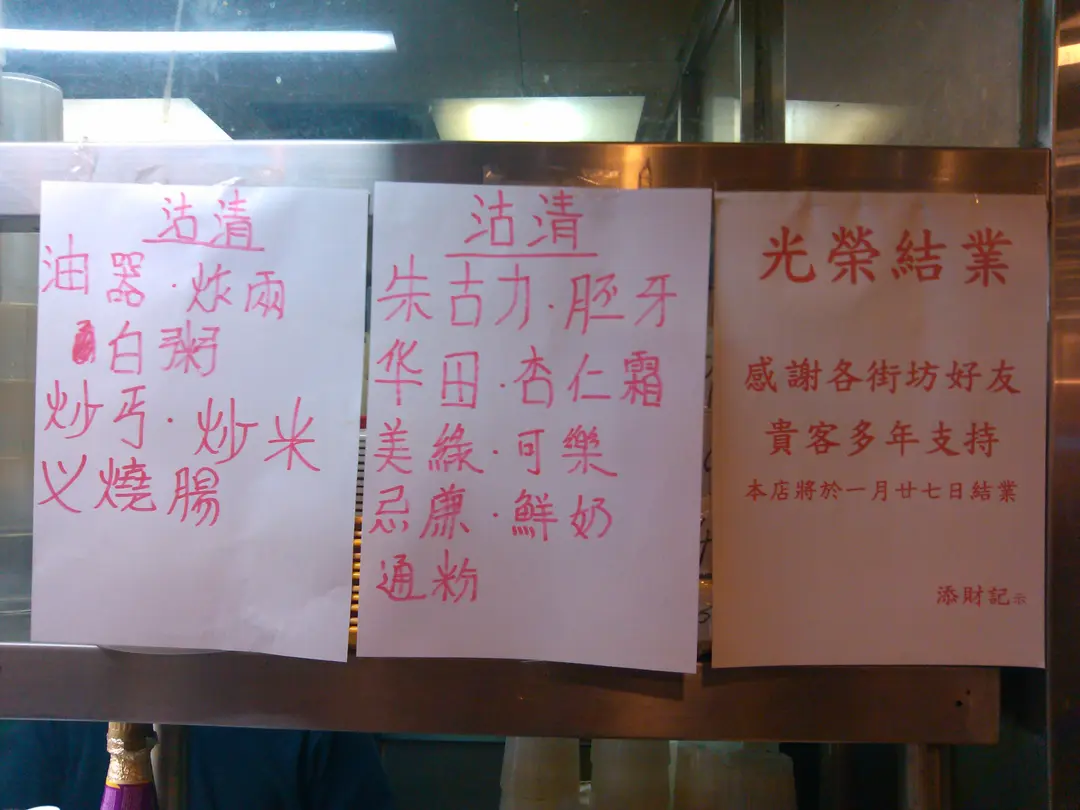 沽清
油器·炸兩
白粥
炒丐·炒米
乂燒腸
沽清
朱古力·胚牙
华田·杏仁霜
美綠·可樂
忌廉·鮮奶
通粉
光榮結業
感謝各街坊好友
貴客多年支持
本店將於一月廿七日結業
添財記示